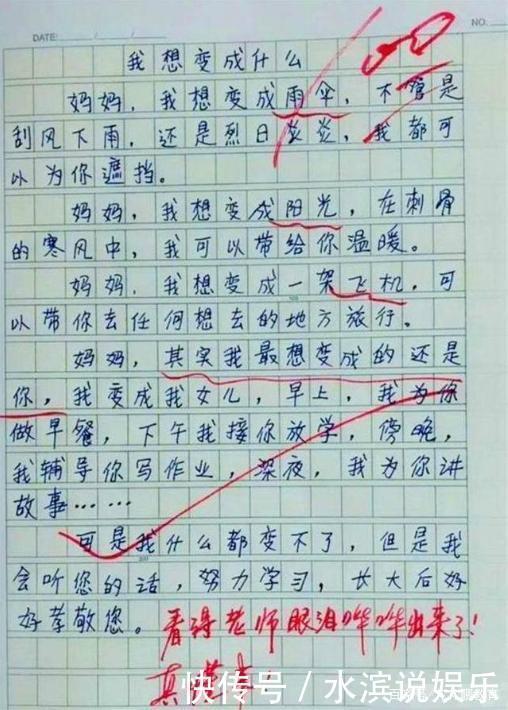 DATE:
NO.
我想变成什么
100
妈妈,我想变成雨伞,不管是
刮风下雨,还是烈日炎炎,我都可
以为你遮挡。
妈妈,我想变成阳光,在刺骨
的寒风中,我可以带给你温暖。
妈妈,我想变成一架飞机,可
以带你去任何想去的地方旅行。
妈妈,其实我最想变成的还是
你,我变成我女儿,早上,我为你
做早餐,下午我接你放学,傍晚,
我辅导你写作业,深夜,我为你讲
故事……
可是我什么都变不了,但是我
会听您的话,努力学习,长大后好
好孝敬您。看得老师眼泪哗哗出来了!
真
快传号/水滨说娱乐